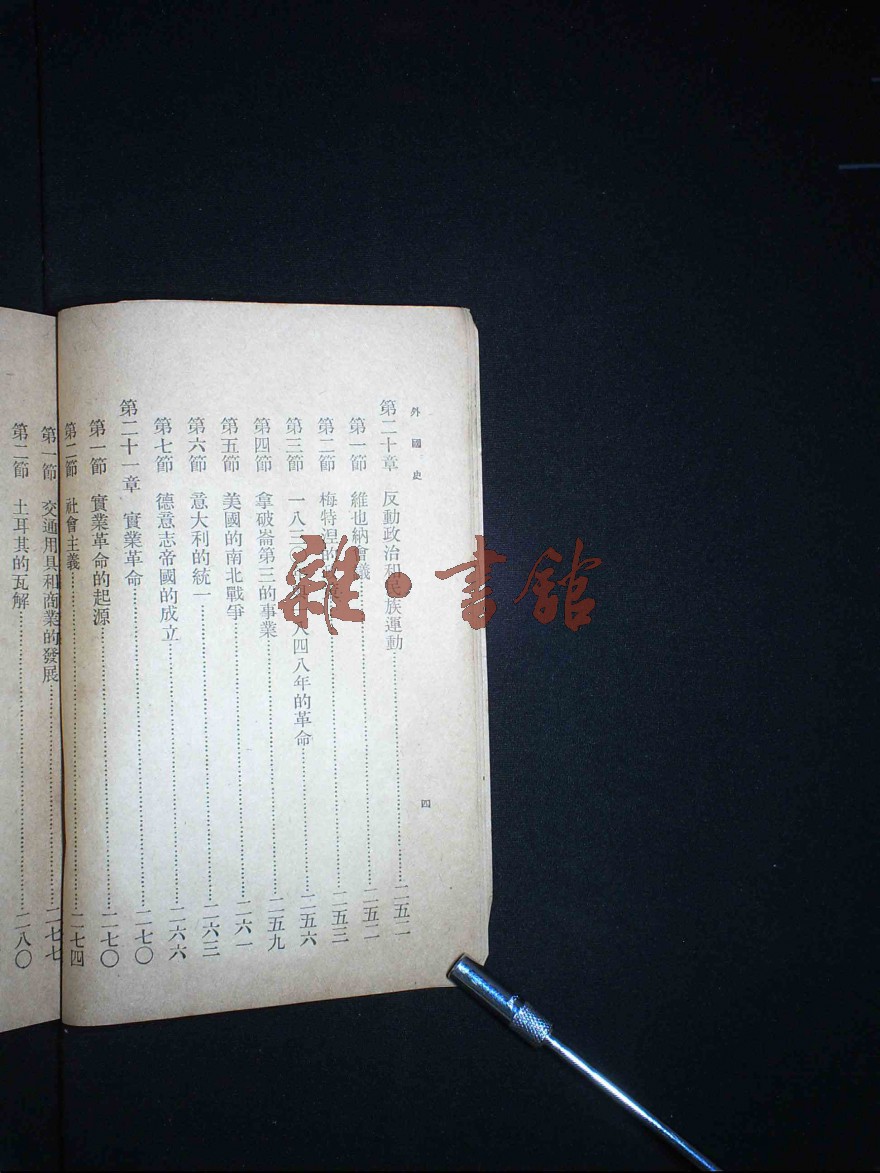 外國史
四
第二十章 反動政治和民族運動……二五二
第一節 維也納會議……二五二
第二節 梅特涅的……二五三
第三節 一八三 八四八年的革命……二五六
第四節 拿破崙第三的事業……二五九
第五節 美國的南北戰爭……二六一
第六節 意大利的統一……二六三
第七節 德意志帝國的成立……二六六
第二十一章 實業革命……二七〇
第一節 實業革命的起源……二七〇
第二節 社會主義……二七四
第一節 交通用具和商業的發展……二七七
第二節 土耳其的瓦解……二八〇
雜·書館